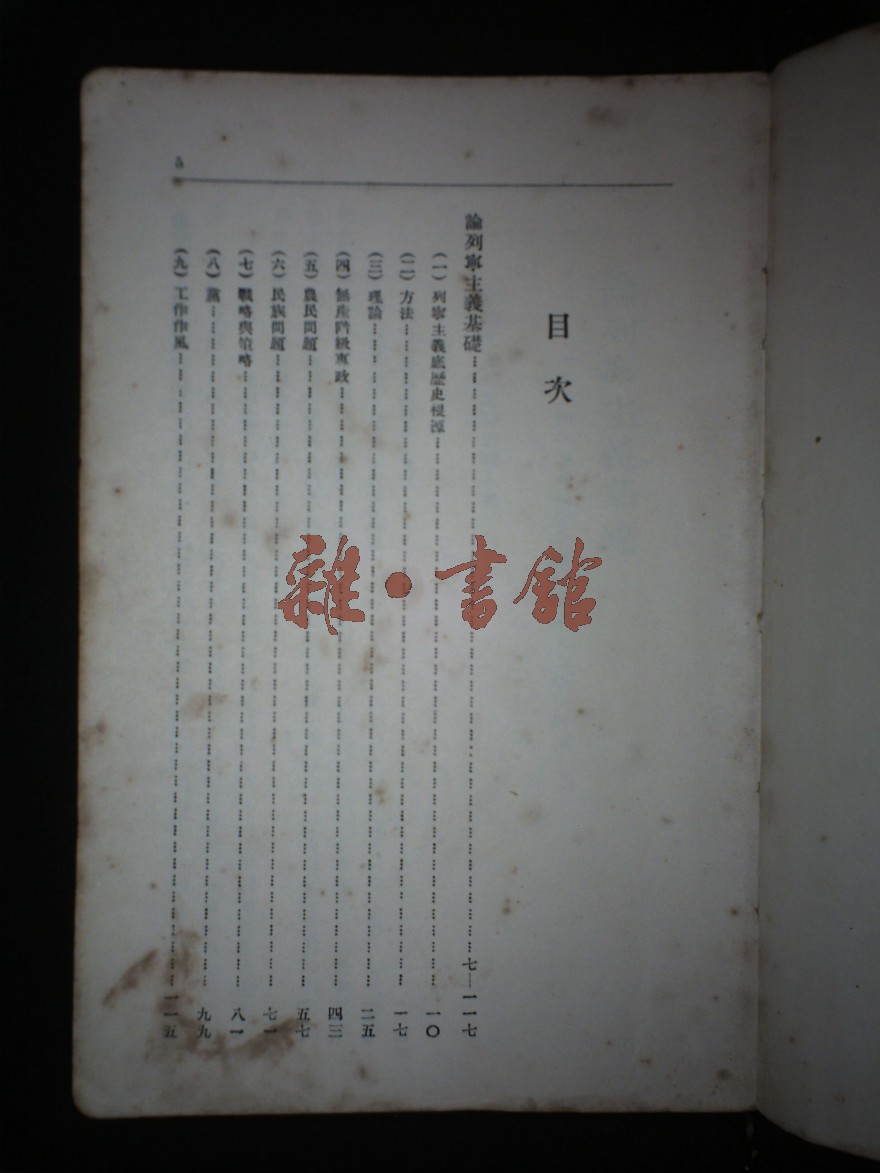 目次
論列寧主義基礎……七—一一七
(一)列寧主義底歷史根源……一〇
(二)方法……一七
(三)理論……二五
(四)無產階級專政……四三
(五)農民問題……五七
(六)民族問題……七一
(七)戰略與策略……八一
(八)黨……九九
(九)工作作風……一一五
5
雜•書館